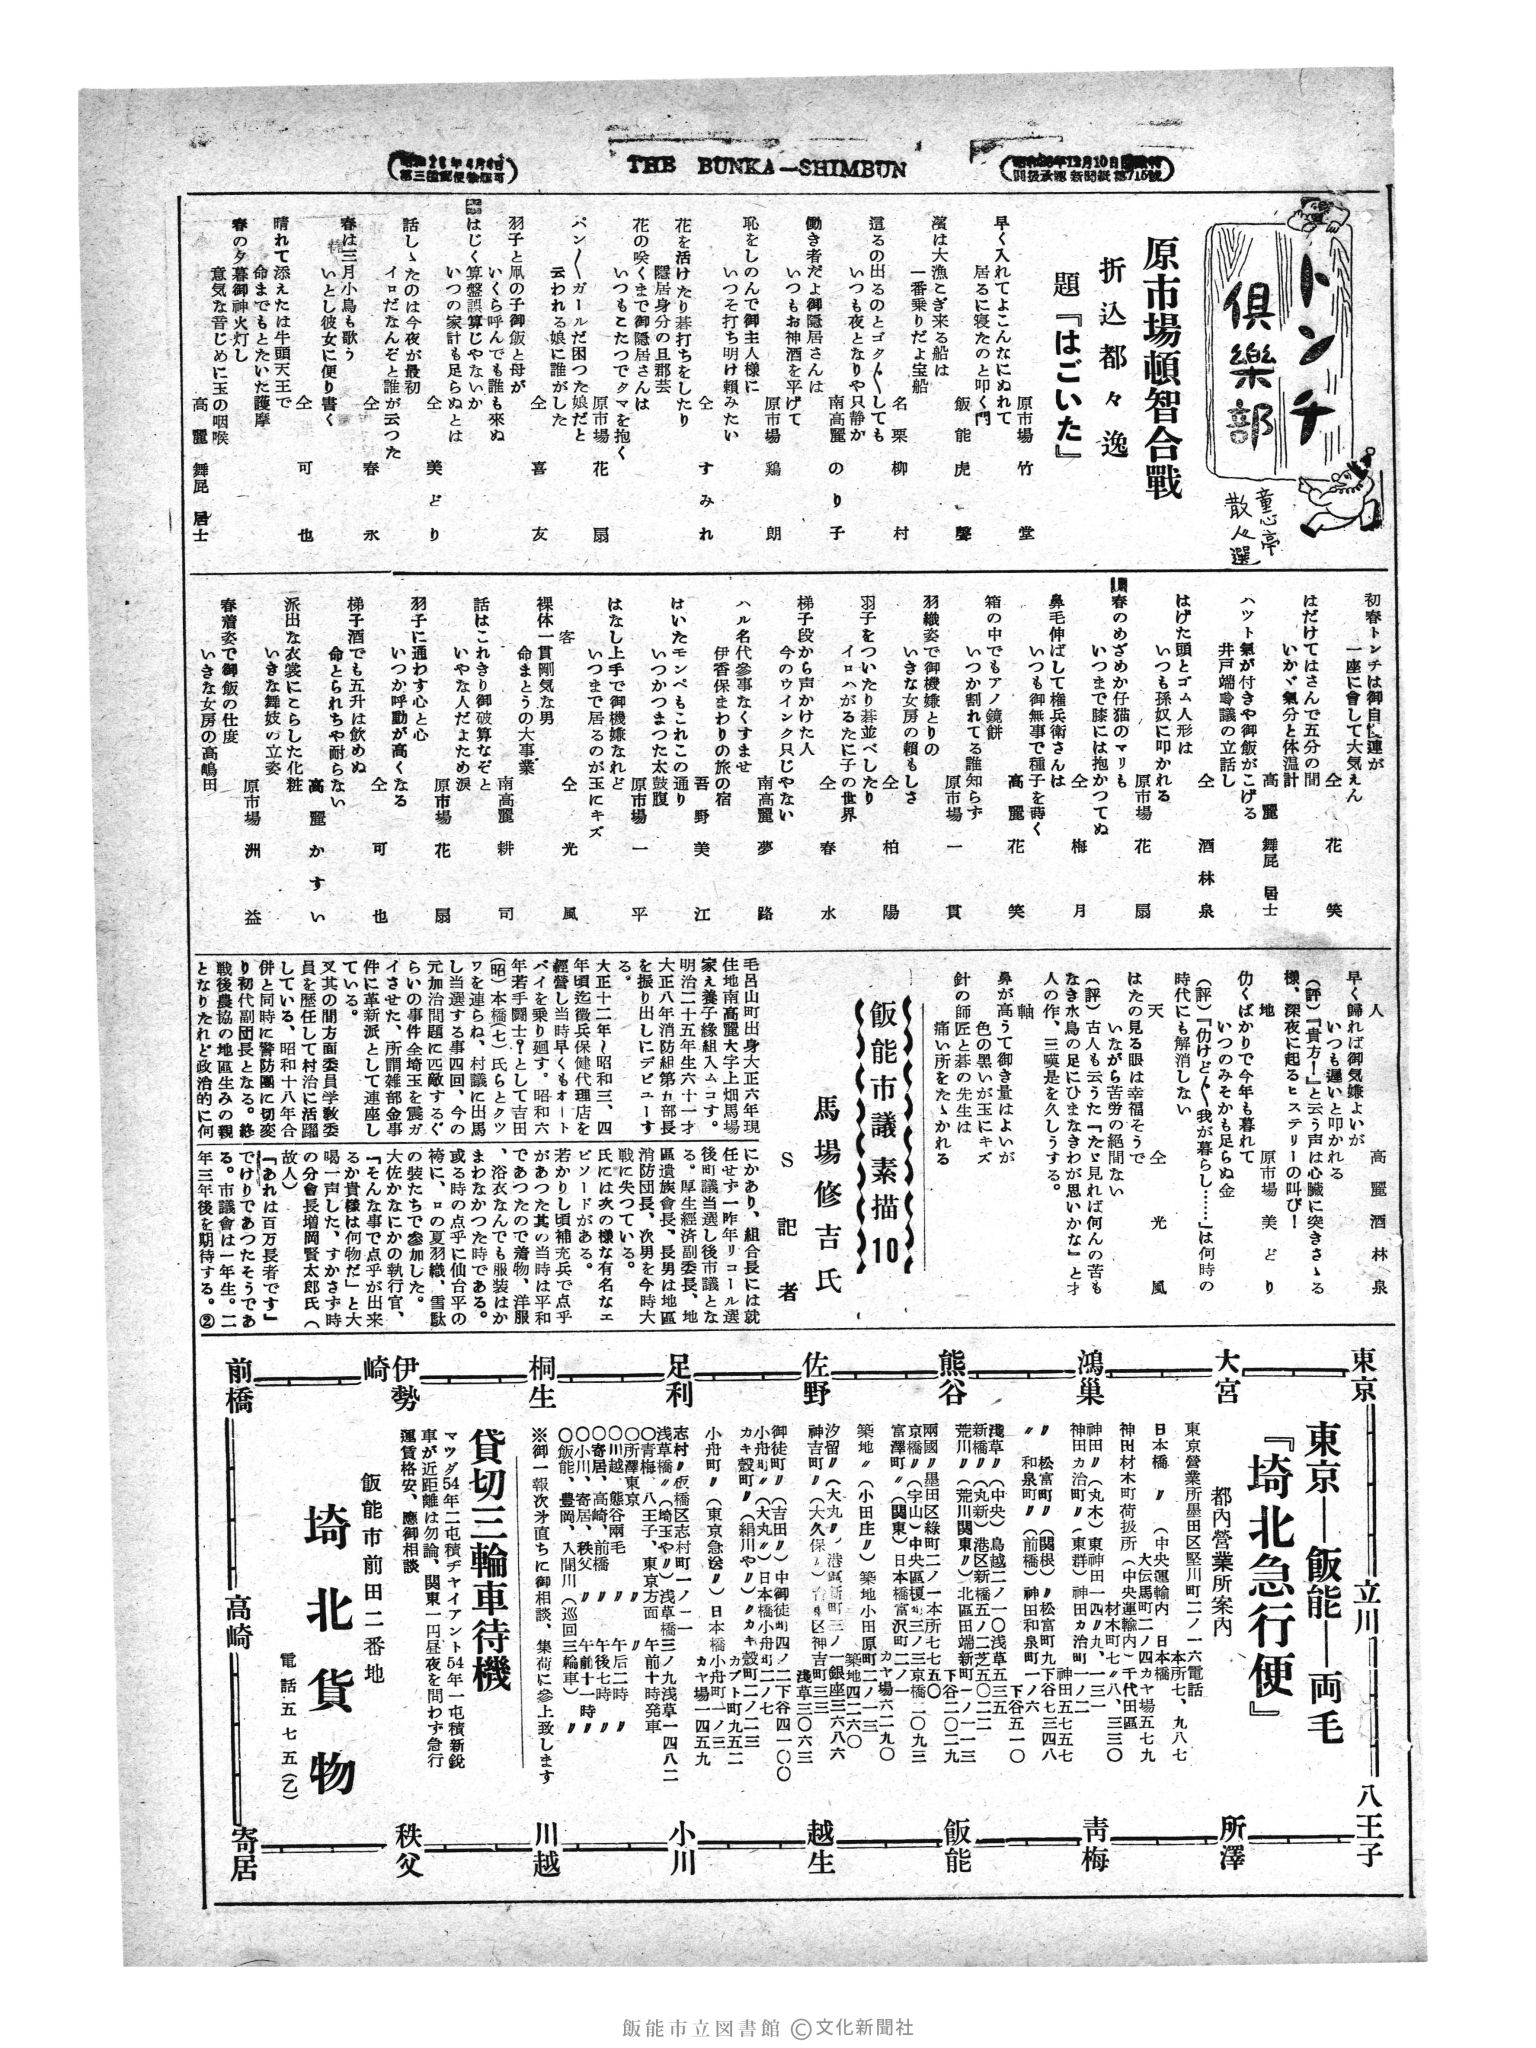 THE BUNKA—SHIMBUN
トンチ
倶樂部
童心亭
散人選
原市場頓智合戰
折込都々逸
題『はごいた』
早く入れてよこんなにぬれて
居るに寝たのと叩く門
原市場 竹堂
濱は大漁こぎ来る船は
一番乗りだよ宝船
飯能 虎聲
這るの出るのとゴタ〳〵しても
いつも夜となりや只静か
名栗 柳村
働き者だよ御隠居さんは
いつもお神酒を平げて
南高麗 のり子
恥をしのんで御主人様に
いつそ打ち明け頼みたい
原市場 鶏朗
花を活けたり碁打ちをしたり
隠居身分の旦那芸
仝 すみれ
花の咲くまで御隠居さんは
いつもこたつでクマを抱く
原市場 花扇
パン〳〵ガールだ困つた娘だと
云われる娘に誰がした
仝 喜友
羽子と凧の子御飯と母が
いくら呼んでも誰も來ぬ
はじく算盤誤算じやないか
いつの家計も足らぬとは
仝 美どり
話しゝたのは今夜が最初
イロだなんぞと誰が云つた
仝 春永
春は三月小鳥も歌う
いとし彼女に便り書く
仝 可也
晴れて添えたは牛頭天王で
命までもとたいた護摩
春の夕暮御神火灯し
意気な音じめに玉の咽喉
高麗 舞屁居士
初春トンチは御自慢連が
一座に會して大気えん
仝 花笑
はだけてはさんで五分の間
いかゞ氣分と体温計
高麗 舞屁居士
ハツト氣が付きや御飯がこげる
井戸端会議の立話し
はげた頭とゴム人形は
いつも孫奴に叩かれる
仝 酒林泉
春のめざめか仔猫のマリも
いつまで膝には抱かつてぬ
原市場 花扇
鼻毛伸ばして権兵衛さんは
いつも御無事で種子を蒔く
仝 梅月
箱の中でもアノ鏡餅
いつか割れてる誰知らず
高麗 花笑
羽織姿で御機嫌とりの
いきな女房の頼もしさ
原市場 一貫
羽子をついたり碁並べしたり
イロハがるたに子の世界
仝 柏陽
梯子段から声かけた人
今のウインク只じやない
仝 春水
ハル名代參事なくすませ
伊香保まわりの旅の宿
南高麗 夢路
はいたモンペもこれこの通り
いつかつまつた太鼓腹
吾野 美江
はなし上手で御機嫌なれど
いつまで居るのが玉にキズ
原市場 一平
客
裸体一貫剛気な男
命まとうの大事業
仝 光風
話はこれきり御破算なぞと
いやな人だよため涙
南高麗 耕司
羽子に通わす心と心
いつか呼動が高くなる
原市場 花扇
梯子酒でも五升は飲めぬ
命とられちや耐らない
仝 可也
派出な衣裳にこらした化粧
いきな舞妓の立姿
高麗 かすい
春着姿で御飯の仕度
いきな女房の高嶋田
原市場 洲益
人
早く歸れば御気嫌よいが
いつも遅いと叩かれる
高麗 酒林泉
(評)『貴方!』と云う声は心臓に突きさゝる
様、深夜に起るヒステリーの叫び!
地
仂くばかりで今年も暮れて
いつのみそかも足らぬ金
原市場 美どり
(評)『仂けど〳〵我が暮らし……』は何時の
時代にも解消しない
天
はたの見る眼は幸福そうで
いながら苦労の絕間ない
仝 光風
(評)古人も云うた『たゞ見れば何んの苦も
なき水鳥の足にひまなきわが思いかな』と才
人の作、三嘆是を久しうする。
軸
鼻が高うて御き量はよいが
色の黑いが玉にキズ
針の師匠と碁の先生は
痛い所をたゝかれる
飯能市議素描10
馬場修吉氏
S記者
毛呂山町出身大正六年現
住地南高麗大字上畑馬場
家え養子緣組入ムコす。
明治二十五年生六十一才
大正八年消防組第五部長
を振り出しにデビューす
る。
大正十二年〜昭和三、四
年頃迄徴兵保健代理店を
經營し当時早くもオート
バイを乗り廻す。昭和六
年若手闘士?として吉田
(昭)本橋(七)氏らとクツ
ワを連らね、村議に出馬
し当選する事四回、今の
元加治問題に匹敵するぐ
らいの事件全埼玉を震ガ
イさせた、所謂雑部金事
件に革新派として連座し
ている。
又其の間方面委員学務委
員を歴任して村治に活躍
している、昭和十八年合
併と同時に警防團に切変
り初代副団長となる。終
戰後農協の地區生みの親
となりたれど政治的に何
にかあり、組合長には就
任せず一昨年リコール選
後町議当選し後市議とな
る。厚生經済副委長、地
區遺族會長、長男は地區
消防団長、次男を今時大
戦に失つている。
氏には次の様な有名なエ
ピソードがある。
若かりし頃補充兵で点乎
があつた其の当時は平和
であつたので着物、洋服
、浴衣なんでも服装はか
まわなかつた時である。
或る時の点乎に仙台平の
袴に、ロの夏羽織、雪駄
の装たちで参加した。
大佐かなにかの執行官、
『そんな事で点乎が出来
るか貴様は何物だ』と大
喝一声した、すかさず時
の分會長増岡賢太郎氏(
故人)
『あれは百万長者です』
でけりであつたそうであ
る。市議會は一年生。二
年三年後を期待する。②
東京 大宮 鴻巣 熊谷 佐野 足利 桐生 伊勢崎 前橋
立川
八王子 所澤 青梅 飯能 越生 小川 川越 秩父 寄居
高崎
東京—飯能—両毛
『埼北急行便』
都内營業所案内
東京營業所墨田区竪川町二ノ一六電話
本所七、九八七
日本橋〃(中央運輸内 日本橋
大伝馬町二ノ四カヤ場五七九
神田材木町荷扱所(中央運輸内)千代田區
材木町七〃八、三三〇
神田〃(丸木)東神田一四〃九、一三一
神田カ治町〃(東群)神田カ治町一ノ二
神田五七五七
〃松富町〃(関根)〃松富町九下谷七三四八
〃和泉町〃(前橋)神田和泉町一ノ六
下谷五一〇
淺草〃(中央)鳥越二ノ一〇浅草五三五
新橋〃(丸新)港区新橋五ノ二芝五〇二二
荒川〃(荒川関東〃)北區田端新町一ノ一一三
下谷二〇二九
兩國〃墨田区綠町二ノ一本所七七五〇
京橋〃(宇山)中央區榎町三ノ三京橋二〇九三
富澤町〃(関東)日本橋富沢町二ノ一
カヤ場六二九〇
築地〃(小田庄〃)築地小田原町二ノ一三
築地四二六〇
汐留〃(大丸〃)港區新町三ノ一銀座三六八六
神吉町〃(大久保〃)台東区神吉町三三
淺草三〇六三
御徒町〃(吉田〃)中御徒町四ノ二下谷四一〇〇
小舟町〃(大丸〃)日本橋小舟町二ノ七
カキ殻町〃(絹川や〃)〃カキ殻町二ノ二三
カブト町九五二
小舟町〃(東京急送〃)日本橋小舟町一ノ三
カヤ場一四五九
志村〃板橋区志村町一ノ一一
浅草橋〃(埼玉や〃)浅草橋三ノ九浅草一四八二
〇青梅、八王子、東京方面 午前十時発車
〇所澤東京 〃
〇川越、熊谷兩毛 〃 午后二時 〃
〇寄居、高崎、前橋 〃 午後七時 〃
〇小川、寄居、秩父 〃 午前十一時 〃
〇飯能、豊岡、入間川(巡回三輪車)〃
※御一報次才直ちに御相談、集荷に参上致します
貸切三輪車待機
マツダ54年二屯積ヂャイアント54年一屯積新鋭
車が近距離は勿論、関東一円昼夜を問わず急行
運賃格安、應御相談
飯能市前田二番地
埼北貨物
電話五七五(乙)
飯能市立図書館 ©文化新聞社